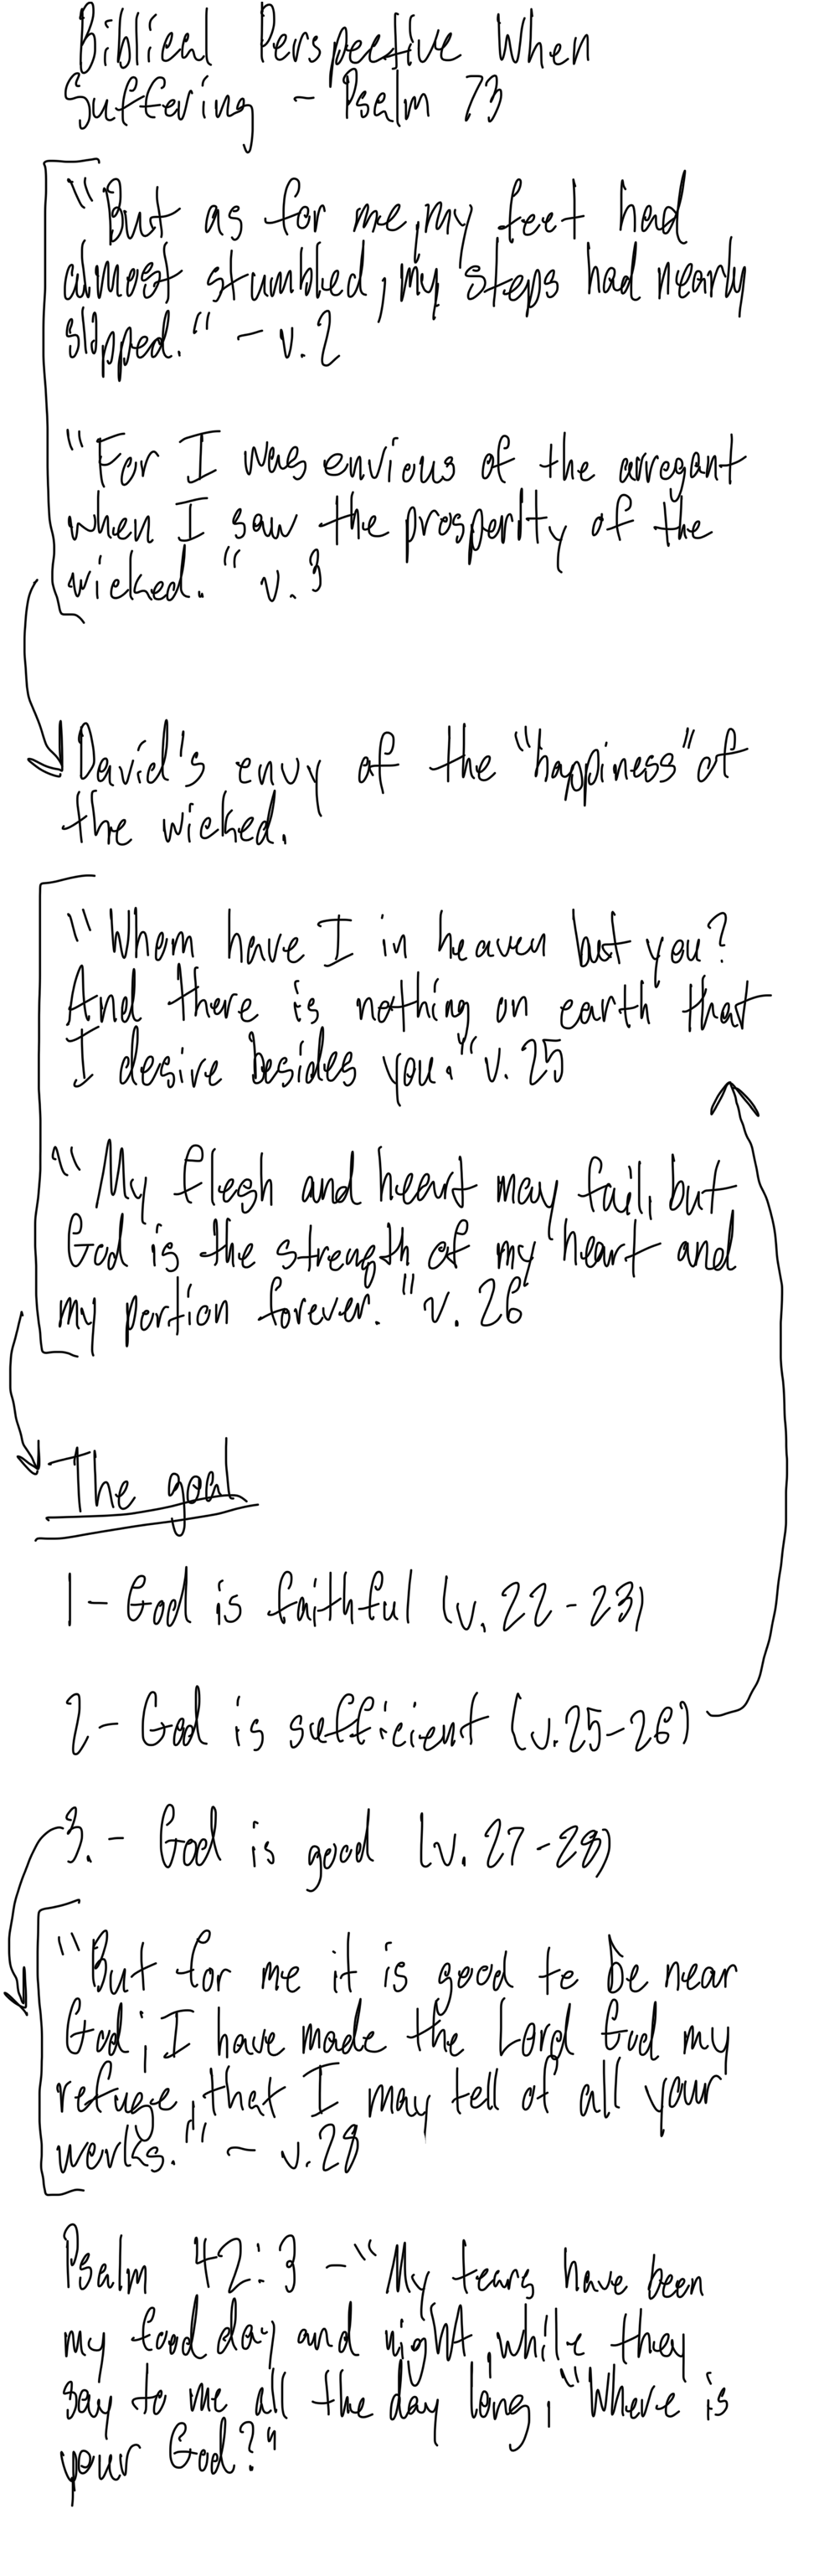 Biblical Perspective When
Suffering - Psalm 73
"But as for me, my feet had
almost stumbled, my steps had nearly
slipped." - v.2
"For I was envious of the arrogant
when I saw the prosperity of the
wicked." v.3
David's envy of the "happiness" of
the wicked.
"Whom have I in heaven but you?
And there is nothing on earth that
I desire besides you." v.25
"My flesh and heart may fail, but
God is the strength of my heart and
my portion forever." v.26
The goal
1- God is faithful (v.22-23)
2- God is sufficient (v.25-26)
3.- God is good (v.27-28)
"But for me it is good to be near
God; I have made the Lord God my
refuge, that I may tell of all your
works." - v.28
Psalm 42:3 - "My tears have been
my food day and night, while they
say to me all the day long, "Where is
your God?"